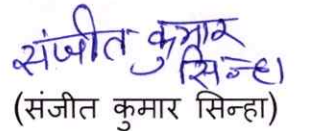 संजीत कुमार
सिन्हा
(संजीत कुमार सिन्हा)